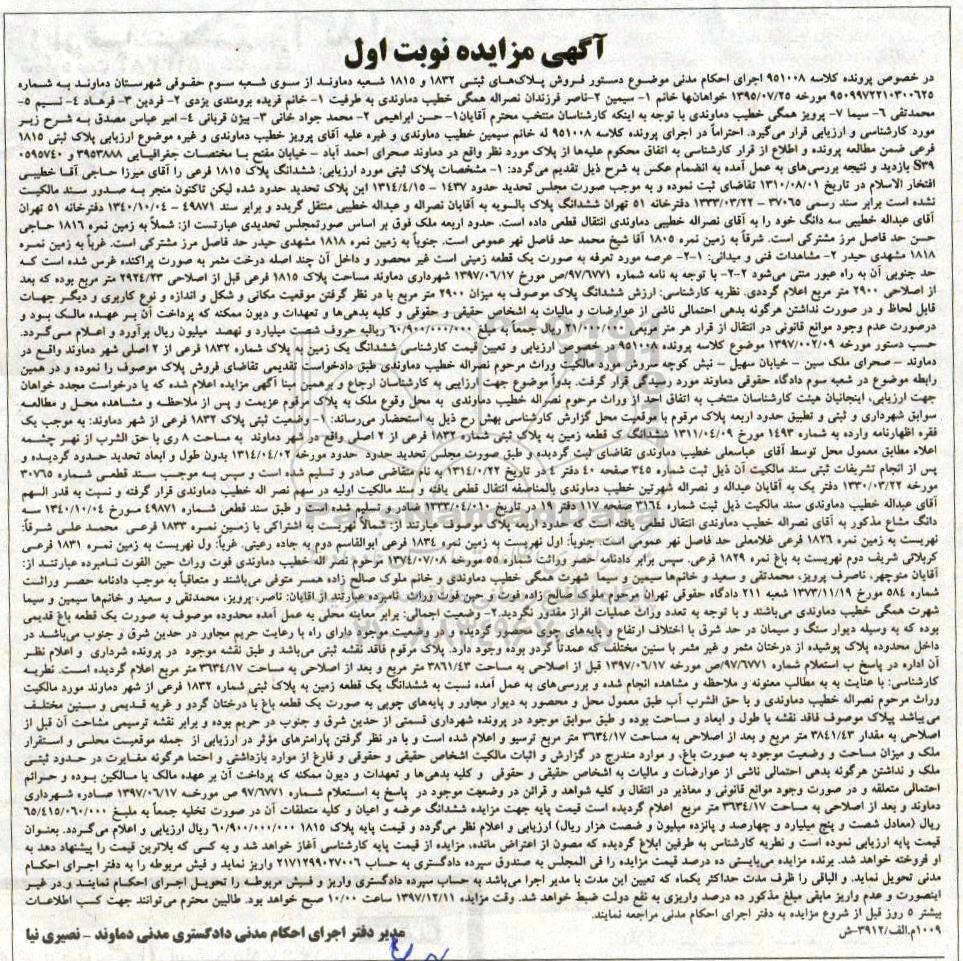 آگهی مزایده نوبت اول
در خصوص پرونده کلاسه ۹۵۱۰۰۸ اجرای احکام مدنی موضوع دستور فروش پلاک‌های ثبتی ۱۸۳۲ و ۱۸۱۵ شعبه دماوند از سوی شعبه سوم حقوقی شهرستان دماوند به شماره
۹۵۰۹۹۷۲۲۱۰۳۰۰۶۲۵ مورخه ۱۳۹۵/۰۷/۲۵ خواهان‌ها خانم ۱- سیمین ۲-ناصر فرزندان نصراله همگی خطیب دماوندی به طرفیت ۱- خانم فریده برومندی یزدی ۲- فردین ۳- فرهاد ۴- نسیم ۵-
محمدتقی ۶- سیما ۷- پرویز همگی خطیب دماوندی با توجه به اینکه کارشناسان منتخب محترم آقایان۱- حسن ابراهیمی ۲- محمد جواد خانی ۳- بیژن قربانی ۴- امیر عباس مصدق به شرح زیر
مورد کارشناسی و ارزیابی قرار می‌گیرد. احتراماً در اجرای پرونده کلاسه ۹۵۱۰۰۸ له خانم سیمین خطیب دماوندی و غیره علیه آقای پرویز خطیب دماوندی و غیره موضوع ارزیابی پلاک ثبتی ۱۸۱۵
فرعی ضمن مطالعه پرونده و اطلاع از قرار کارشناسی به اتفاق محکوم علیه‌ها از پلاک مورد نظر واقع در دماوند صحرای احمد آباد - خیابان مفتح با مختصات جغرافیایی ۳۹۵۳۸۸۸ و ۰۵۹۵۷۴۰
S۳۹ بازدید و نتیجه بررسی‌های به عمل آمده به انضمام عکس به شرح ذیل تقدیم می‌گردد: ۱- مشخصات پلاک ثبتی مورد ارزیابی: ششدانگ پلاک ۱۸۱۵ فرعی را آقای میرزا حاجی آقا خطیبی
افتخار الاسلام در تاریخ ۱۳۱۰/۰۸/۰۱ تقاضای ثبت نموده و به موجب صورت مجلس تحدید حدود ۱۴۳۷ - ۱۳۱۴/۴/۱۵ این پلاک تحدید حدود شده لیکن تاکنون منجر به صدور سند مالکیت
نشده است برابر سند رسمی ۳۷۰۶۵ - ۱۳۳۳/۰۳/۲۲ دفترخانه ۵۱ تهران ششدانگ پلاک بالسویه به آقایان نصراله و عبداله خطیبی منتقل گردید و برابر سند ۴۹۸۷۱ - ۱۳۴۰/۱۰/۰۴ دفترخانه ۵۱ تهران
آقای عبداله خطیبی سه دانگ خود را به آقای نصراله خطیبی دماوندی انتقال قطعی داده است. حدود اربعه ملک فوق بر اساس صورتمجلس تحدیدی عبارتست از: شملاً به زمین نمره ۱۸۱۶ حاجی
حسن حد فاصل مرز مشترکی است. شرقاً به زمین نمره ۱۸۰۵ آقا شیخ محمد حد فاصل نهر عمومی است. جنوباً به زمین نمره ۱۸۱۸ مشهدی حیدر حد فاصل مرز مشترکی است. غرباً به زمین نمره
۱۸۱۸ مشهدی حیدر ۲- مشاهدات فنی و میدانی: ۱-۲- عرصه مورد تعرفه به صورت یک قطعه زمینی است غیر محصور و داخل آن چند اصله درخت مثمر به صورت پراکنده غرس شده است که
حد جنوبی آن به راه عبور منتی می‌شود ۲-۲- با توجه به نامه شماره ۹۷/۶۷۷۱/ص مورخ ۱۳۹۷/۰۶/۱۷ شهرداری دماوند مساحت پلاک ۱۸۱۵ فرعی قبل از اصلاحی ۲۹۲۴/۲۳ متر مربع بوده که بعد
از اصلاحی ۲۹۰۰ متر مربع اعلام گردیی. نظریه کارشناسی: ارزش ششدانگ پلاک موصوف به میزان ۲۹۰۰ متر مربع با در نظر گرفتن موقعیت مکانی و شکل و اندازه و نوع کاربری و دیگر جهات
قابل لحاظ و در صورت نداشتن هرگونه بدهی احتمالی ناشی از عوارضات و مالیات به اشخاص حقیقی و حقوقی و کلیه بدهی‌ها و تعهدات و دیون ممکنه که پرداخت آن بر عهده مالک بود و
درصورت عدم وجود موانع قانونی در انتقال از قرار هر متر مربع ریال جمعاً به مبلغ ۶۰/۹۰۰/۰۰۰/۰۰۰ ریالبه حروف شصت میلیارد و نهصد میلیون ریال برآورد و اعلام می‌گردد.
حسب دستور مورخه ۱۳۹۷/۰۰۲/۰۹ موضوع کلاسه پرونده ۹۵۱۰۰۸ در خصوص ارزیابی و تعیین قیمت کارشناسی ششدانگ یک زمین به پلاک شماره ۱۸۳۲ فرعی از ۲ اصلی شهر دماوند واقع در
دماوند - صحرای ملک سین - خیابان سهیل - نبش کوچه سروش مورد مالکیت وراث مرحوم نصراله خطیب دماوندی طبق دادخواست تقدیمی تقاضای فروش پلاک موصوف را نموده و در همین
رابطه موضوع در شعبه سوم دادگاه حقوقی دماوند مورد رسیدگی قرار گرفت. بدواً موضوع جهت ارزایبی به کارشناسان ارجاع و برهمین مبنا آگهی مزایده اعلام شده که با درخواست مجدد خواهان
جهت ارزیابی، اینجانبان هیئت کارشناسان منتخب به اتفاق احد از وراث مرحوم نصراله خطیب دماوندی به محل وقوع ملک به پلاک مرقوم عزیمت و پس از ملاحظه و مشاهده محل و مطالعه
سوابق شهرداری و ثبتی و تطبیق حدود اربعه پلاک مرقوم با موقعیت محل گزارش کارشناسی بهش رح ذیل به استحضار می‌رساند: ۱- وضعیت ثبتی پلاک ۱۸۳۲ فرعی از شهر دماوند: به موجب یک
فقره اظهارنامه وارده به شماره ۱۴۹۳ مورخ ۱۳۱۱/۰۴/۰۹ ششدانگ ک قطعه زمین به پلاک ثبتی شماره ۱۸۳۲ فرعی از ۲ اصلی واقع در شهر دماوند به مساحت ۸ ری با حق الشرب از نهر چشمه
اعلاء مطابق معمول محل توسط آقای عباسعلی خطیب دماوندی تقاضای ثبت گردیده و طبق صورت مجلس تحدید حدود حدود مورخه ۱۳۱۴/۰۴/۰۲ بدون طول و ابعاد تحدید حدود گردیده و
پس از انجام تشریفات ثبتی سند مالکیت آن ذیل ثبت شماره ۳۴۵ صفحه ۴۰ دفتر ۴ در تاریخ ۱۳۱۴/۰/۲۲ به نام متقاضی صادر و تسلیم شده است و سپس به موجب سند قطعی شماره ۳۰۷۶۵
مورخه ۱۳۳۰/۰۳/۲۲ دفتر یک به آقایان عبداله و نصراله شهرتین خطیب دماوندی بالمناصفه انتقال قطعی یافته و سند مالکیت اولیه در سهم نصر اله خطیب دماوندی قرار گرفته و نسبت به قدر السهم
آقای عبداله خطیب دماوندی سند مالکیت ذیل ثبت شماره ۲۱۶۴ صفحه ۱۱۷ دفتر ۱۶ در تاریخ ۱۳۳۳/۰۴/۱۰ صادر و تسلیم شده است و طبق سند قطعی شماره ۴۹۸۷۱ مورخ ۱۳۴۰/۱۰/۰۴ سه
دانگ مشاع مذکور به آقای نصراله خطیب دماوندی انتقال قطعی یافته است که حدود اربعه پلاک موصوف عبارتند از: شمالاً نهریست به اشتراکی با زمین نمره ۱۸۳۳ فرعی محمد علی شرقاً:
نهریست به زمین نمره ۱۸۲۶ فرعی غلامعلی حد فاصل نهر عمومی است. جنوباً: اول نهریست به زمین نمره ۱۸۳۴ فرعی ابوالقاسم دوم به جاده رعیتی. غرباً: ول نهریست به زمین نمره ۱۸۳۱ فرعی
کربلائی شریف دوم نهریست به باغ نمره ۱۸۲۹ فرعی. سپس برابر دادنامه حصر وراثت شماره ۵۵ مورخه ۱۳۷۴/۰۷/۰۸ مرحوم نصر اله خطیب دماوندی فوت وراث حین الفوت نامبرده عبارتند از:
آقایان منوچهر، ناصرف پرویز، محمدتقی و سعید و خانم‌ها سیمین و سیما شهرت همگی خطیب دماوندی و خانم ملوک صالح زاده همسر متوفی می‌باشند و متعاقباً به موجب دادنامه حصر وراثت
شماره ۵۸۴ مورخ ۱۳۷۳/۱۱/۱۹ شعبه ۲۱۱ دادگاه حقوقی تهران مرحوم ملوک صالح زاده فوت و حین فوت وراث نامبرده عبارتند از اقایان: ناصر، پرویز، محمدتقی و سعید و خانم‌ها سیمین و سیما
شهرت همگی خطیب دماوندی می‌باشند و با توجه به تعدد وراث عملیات افراز مقدور نگردید.۲- وضعیت اجمالی: برابر معاینه محلی به عمل آمده محدوده موصوف به صورت یک قطعه باغ قدیمی
بوده که به وسیله دیوار سنگ و سیمان در حد شرق با اختلاف ارتفاع و پایه‌های چوبی محصور گردیده و در وضعیت موجود دارای راه با رعایت حریم مجاور در حدین شرق و جنوب می‌باشد در
داخل محدوده پلاک پوشیده از درختان مثمر و غیر مثمر با سنین مختلف که عمدتاً گردو بوده وجود دارد. پلاک مرقوم فاقد نقشه ثبتی می‌باشد و طبق نقشه موجود در پرونده شرداری و اعلام نظر
آن اداره در پاسخ ب استعلام شماره ۹۷/۶۷۷۱/ص مورخه ۱۳۹۷/۰۶/۱۷ قبل از اصلاحی به مساحت ۳۸۶۱/۴۳ متر مربع و بعد از اصلاحی به مساحت ۳۶۳۴/۱۷ متر مربع اعلام گردیده است. نظریه
کارشناسی: با عنایت به به مطالب معنونه و ملاحظه و مشاهده انجام شده و بررسی‌های به عمل آمده نسبت به ششدانگ یک قطعه زمین به پلاک ثبتی شماره ۱۸۳۲ فرعی از شهر دماوند مورد مالکیت
وراث مرحوم نصراله خطیب دماوندی و با حق الشرب آب طبق معمول محل و محصور به دیوار مجاور و پایه‌های چوبی به صورت یک قطعه باغ با درختان گردو و غریه قدیمی و سنین مختلف
می‌باشد پیلاک موصوف فاقد نقشه با طول و ابعاد و مساحت بوده و طبق سوابق موجود در پرونده شهرداری قسمتی از حدین شرق و جنوب در حریم بوده و برابر نقشه ترسیمی مشاحت آن قبل از
اصلاحی به مقدار ۳۸۴۱/۴۳ متر مربع و بعد از اصلاحی به مساحت ۳۶۳۴/۱۷ متر مربع ترسیو و اعلام شده است و با در نظر گرفتن پارامترهای مؤثر در ارزیابی از جمله موقعیت محلی و استقرار
ملک و میزان مساحت و وضعیت موجود به صورت باغ، و موارد مندرج در گزارش و اثبات مالکیت اشخاص حقیقی و حقوقی و فارغ از موارد بازداشتی و احتما هرگونه مغایرت در حدود ثبتی
ملک و نداشتن هرگونه بدهی احتمالی ناشی از عوارضات و مالیات به اشخاص حقیقی و حقوقی و کلیه بدهی‌ها و تعهدات و دیون ممکنه که پرداخت آن بر عهده مالک یا مالکین بوده و حرائم
احتمالی متعلقه و در صورت وجود موانع قانونی و معاذیر در انتقال و کلیه شواهد و قرائن در وضعیت موجود در پاسخ به استعلام شماره ۹۷/۶۷۷۱ ص مورخه ۱۳۹۷/۰۶/۱۷ صادره شهرداری
دماوند و بعد از اصلاحی به مساحت ۳۶۳۴/۱۷ متر مربع اعلام گردیده است قیمت پایه جهت مزایده ششدانگ عرصه و اعیان و کلیه متعلقات آن در صورت تخلیه جمعاً به ملبغ ۶۵/۴۱۵/۰۶۰/۰۰۰
ریال (معادل شصت و پنج میلیارد و چهارصد و پانزده میلیون و ضصت هزار ریال) ارزیابی و اعلام نظر می‌گردد و قیمت پایه پلاک ۱۸۱۵ ۶۰/۹۰۰/۰۰۰/۰۰۰ ریال ارزیابی و اعلام می‌گردد. بعنوان
قیمت پایه ارزیابی نموده است و نطریه کارشناس به طرفین ابلاغ گردیده که مصون از اعتراض مانده، مزایده از قیمت پایه کارشناسی آغاز خواهد شد و به کسی که بلاترین قیمت را پیشنهاد دهد به
او فروخته خواهد شد. برنده مزایده می‌بایستی ده درصد قیمت مزایده را فی المجلس به صندوق سپرده دادگستری به حساب ۲۱۷۱۲۹۹۰۲۷۰۰۶ واریز نماید و فیش مربوطه را به دفتر اجرای احکام
مدنی تحویل نماید. و الباقی را ظرف مدت حداکثر یکماه که تعیین این مدت با مدیر اجرا می‌باشد به حساب سپرده دادگستری واریز و فیش مربوطه را تحویل اجرای احکام نمایند و در غیر
اینصورت و عدم واریز مابقی مبلغ مذکور ده درصد واریزی به نفع دولت ضبط خواهد شد. وقت مزایده ۱۳۹۷/۱۲/۱۱ ساعت ۱۰/۰۰ صبح خواهد بود. طالبین محترم می‌توانند جهت کسب اطلاعات
بیشتر ۵ روز قبل از شروع مزایده به دفتر اجرای احکام مدنی مراجعه نمایند.
۱۰۰۹م.الف/۳۹۱۲-ش
مدیر دفتر اجرای احکام مدنی دادگستری مدنی دماوند - نصیری نیا